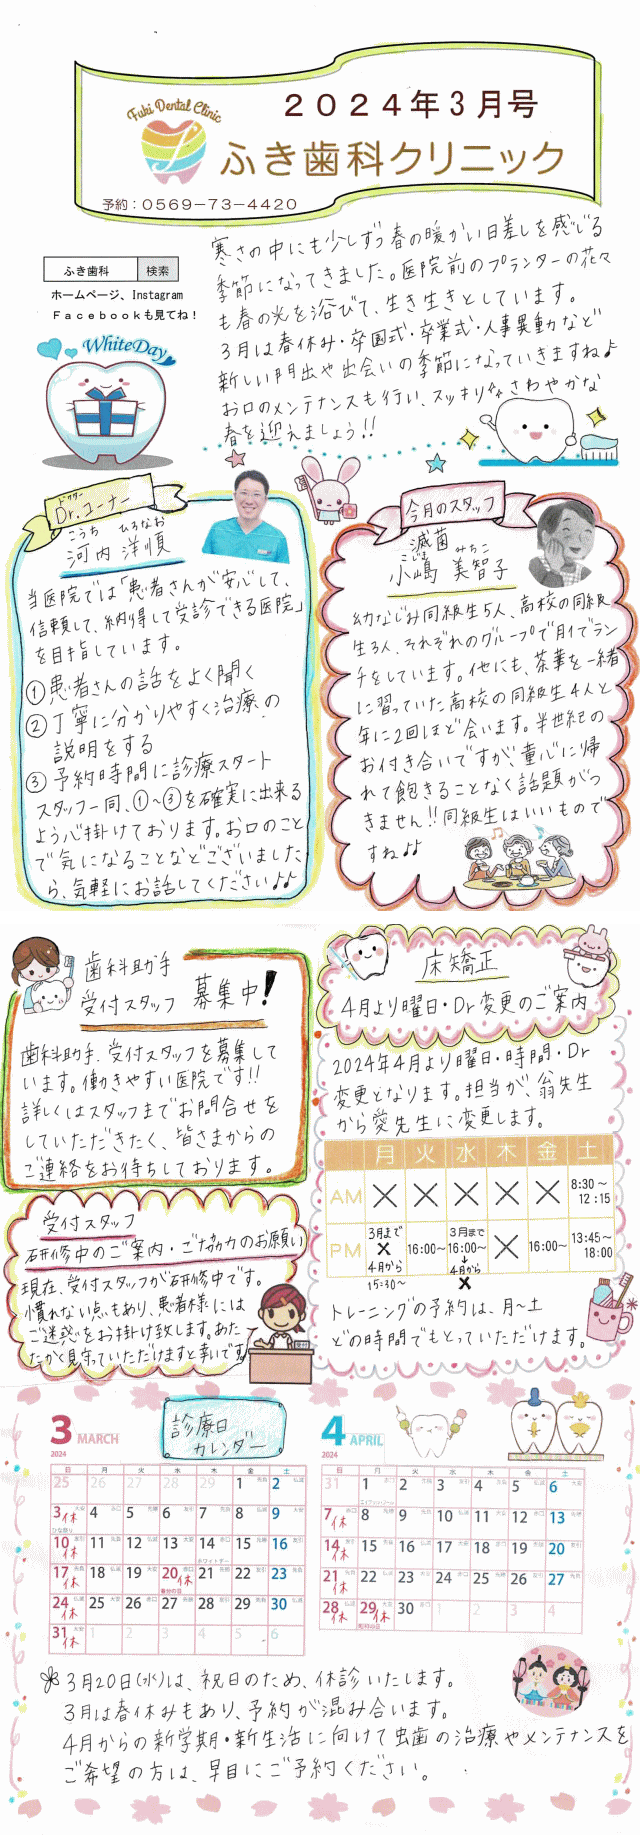 Fuki Dental Clinic
2024年3月号
ふき歯科クリニック
予約：0569-73-4420
ふき歯科 検索
ホームページ、Instagram
Facebookも見てね！
WhiteDay
寒さの中にも少しずつ春の暖かい日差しを感じる
季節になってきました。医院前のプランターの花々
も春の光を浴びて、生き生きとしています。
3月は春休み・卒園式・卒業式・人事異動など
新しい門出や出会いの季節になっていきますね♪
お口のメンテナンスも行い、スッキリさわやかな
春を迎えましょう!!
ドクター
Dr.コーナー
こうち ひろなお
河内 洋順
当医院では「患者さんが安心して、
信頼して、納得して受診できる医院」
を目指しています。
①患者さんの話をよく聞く
②丁寧に分かりやすく治療の
説明をする
③予約時間に診療スタート
スタッフ一同、①〜③を確実に出来る
よう心掛けております。お口のこと
で気になることなどございました
ら、気軽にお話してください♪♪
今月のスタッフ
滅菌
こじま みちこ
小嶋 美智子
幼なじみ同級生5人、高校の同級
生3人、それぞれのグループで月1でラン
チをしています。他にも、茶華を一緒
に習っていた高校の同級生4人と
年に2回ほど会います。半世紀の
お付き合いですが、童心に帰
れて飽きることなく話題がつ
きません!!同級生はいいもので
すね♪♪
歯科助手
受付スタッフ 募集中!
歯科助手、受付スタッフを募集して
います。働きやすい医院です!!
詳しくはスタッフまでお問合せを
していただきたく、皆さまからの
ご連絡をお待ちしております。
受付スタッフ
研修中のご案内・ご協力のお願い
現在、受付スタッフが研修中です。
慣れない点もあり、患者様には
ご迷惑をお掛け致します。あた
たかく見守っていただけますと幸いです。
受付
床矯正
4月より曜日・Dr変更のご案内
2024年4月より曜日・時間・Dr
変更となります。担当が、翁先生
から愛先生に変更します。
月 火 水 木 金 土
AM × × × × × 8:30〜12:15
PM 3月まで × 4月から 15:30〜 16:00〜 3月まで 16:00〜 ↓ 4月から × × 16:00〜 13:45〜18:00
トレーニングの予約は、月〜土
どの時間でもとっていただけます。
診療日
カレンダー
3 MARCH
2024
日 月 火 水 木 金 土
25 26 27 28 29 1 2
3休 4 5 6 7 8 9
ひな祭り
10休 11 12 13 14 15 16
ホワイトデー
17休 18 19 20休 21 22 23
春分の日
24休 25 26 27 28 29 30
31休 1 2 3 4 5 6
4 APRIL
2024
日 月 火 水 木 金 土
31 1 2 3 4 5 6
7休 8 9 10 11 12 13
14休 15 16 17 18 19 20
21休 22 23 24 25 26 27
28休 29休 30 1 2 3 4
昭和の日
3月20日(水)は、祝日のため、休診いたします。
3月は春休みもあり、予約が混み合います。
4月からの新学期・新生活に向けて虫歯の治療やメンテナンスを
ご希望の方は、早目にご予約ください。